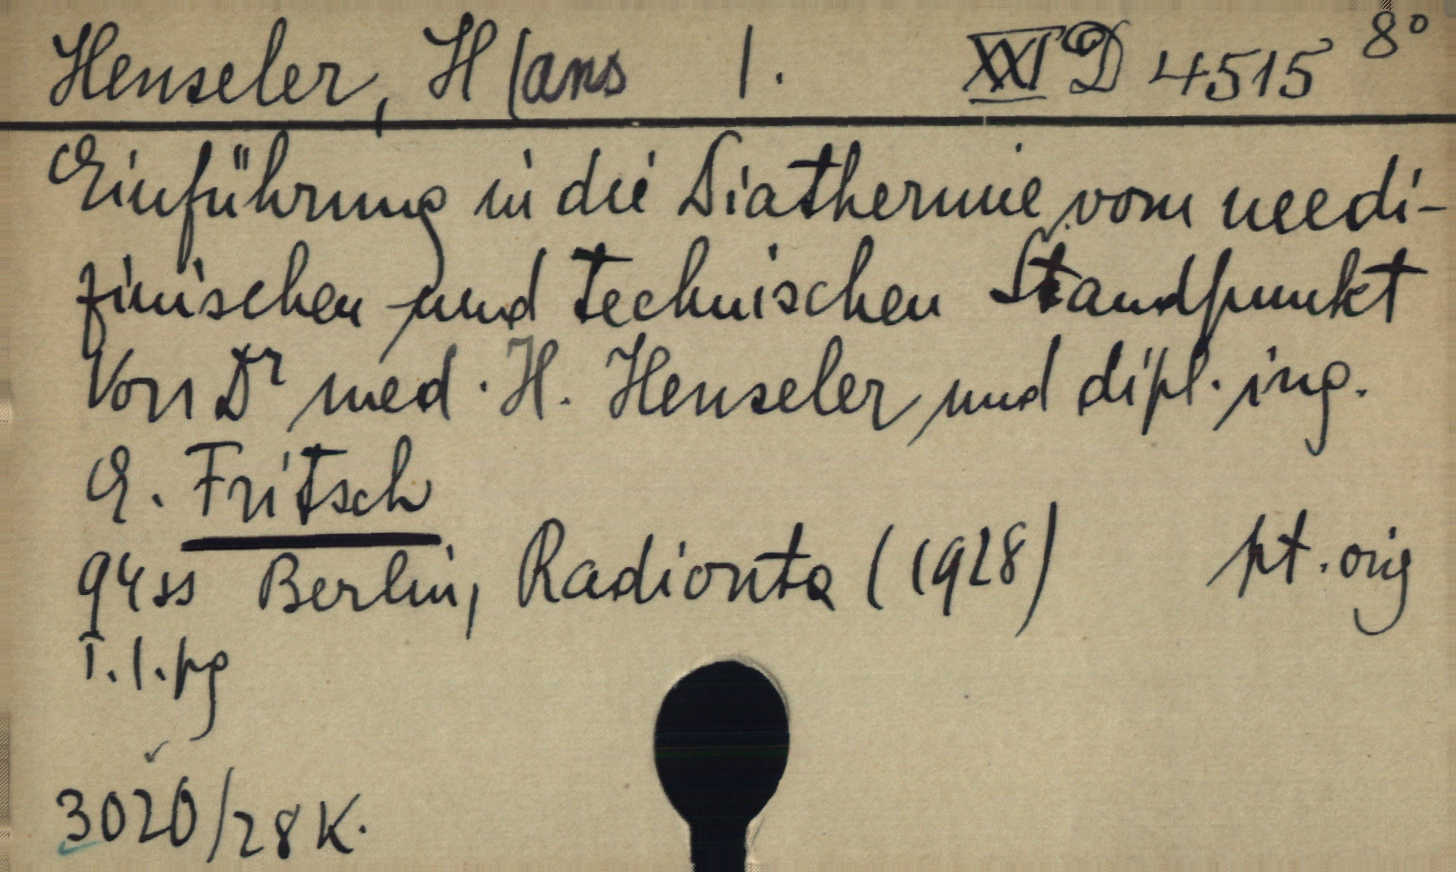 Henseler, H(ans 1. XXI D 4515 8°
Einführung in die Diathermie vom medi-
zinischen und technischen Standpunkt
Von Dr med. H. Henseler und dipl. ing.
E. Fritsch
94 ss Berlin, Radionta (1928) pt. orig
T. l. pg
3020/28 K.